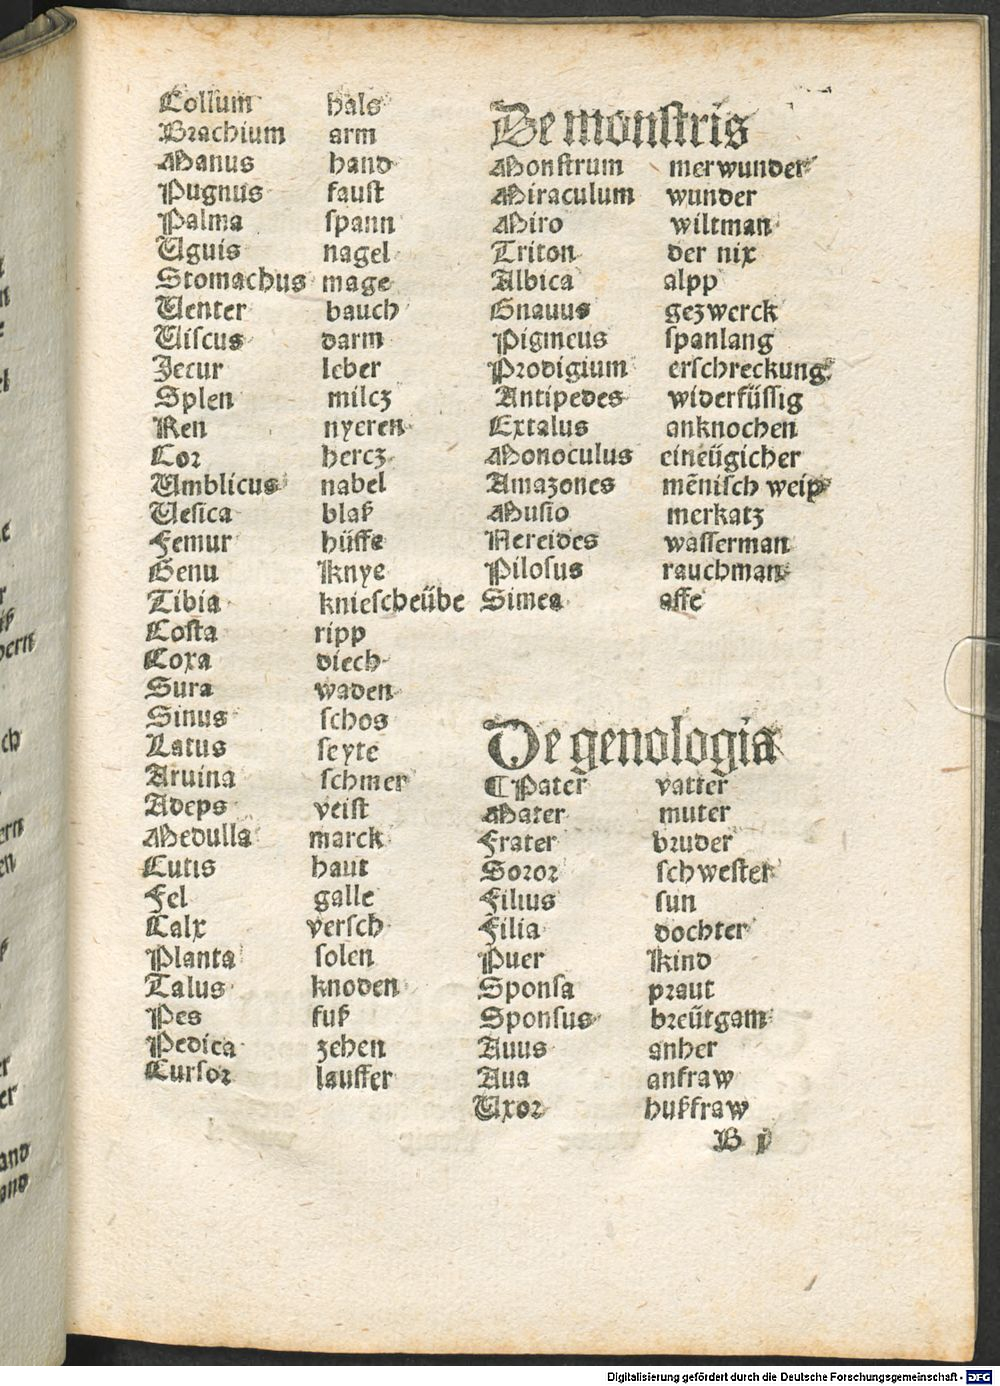 Collum hals
Brachium arm
Manus hand
Pugnus fauſt
Palma ſpann
Uguis nagel
Stomachus mage
Uenter bauch
Uiſcus darm
Jecur leber
Splen milcz
Ren nyeren
Cor hercz
Umblicus nabel
Ueſica blaß
Femur hüffe
Genu Knye
Tibia knieſcheübe
Coſta ripp
Coxa diech
Sura waden
Sinus ſchos
Latus ſeyte
Aruina ſchmer
Adeps veiſt
Medulla marck
Cutis haut
Fel galle
Calx verſch
Planta ſolen
Talus knoden
Pes fuß
Pedica zehen
Curſor lauffer
De monſtris
Monſtrum merwunder
Miraculum wunder
Miro wiltman
Triton der nix
Albica alpp
Gnauus gezwerck
Pigmeus ſpanlang
Prodigium erſchreckung
Antipedes widerfüſſig
Extalus anknochen
Monoculus eineügicher
Amazones mẽniſch weip
Muſio merkatz
Nereides waſſerman
Piloſus rauchman
Simea affe
De genologia
¶ Pater vatter
Mater muter
Frater bruder
Soror ſchweſter
Filius ſun
Filia dochter
Puer Kind
Sponſa praut
Sponſus breütgam
Auus anher
Aua anfraw
Uxor hußfraw
B
Digitalisierung gefördert durch die Deutsche Forschungsgemeinschaft - DFG